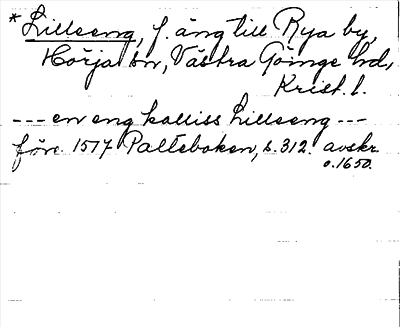 * Lillseng, f. äng till Rya by,
Hörja sn, Västra Göinge hd,
Krist. l.
--- en eng kalliss Lillseng ---
före 1517 Palteboken, s. 312. avskr.
o. 1650.